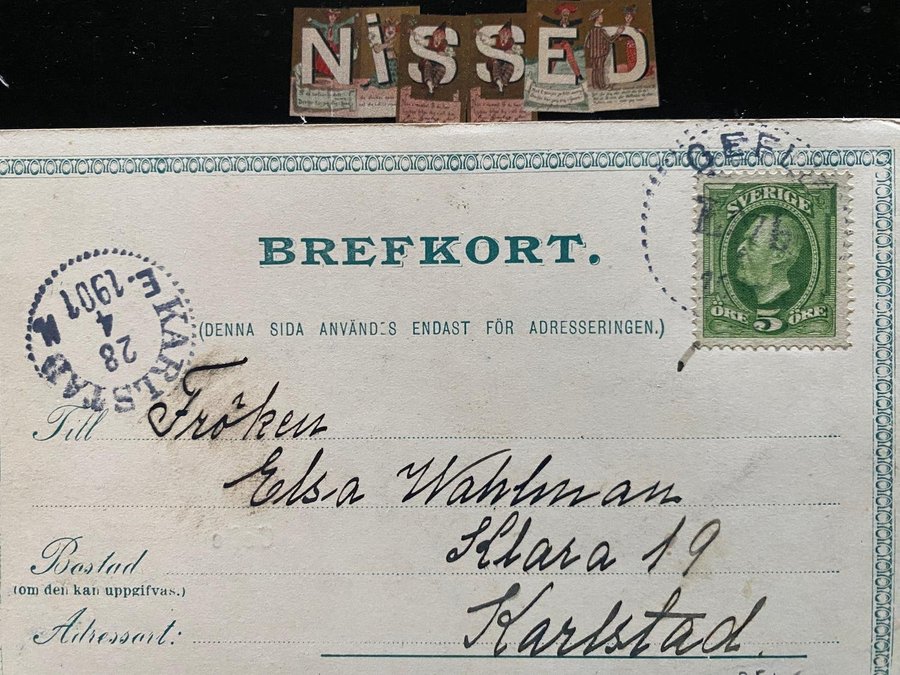 NiSSED
BREFKORT.
(DENNA SIDA ANVÄNDES ENDAST FÖR ADRESSERINGEN.)
SVERIGE
ÖRE 5 ÖRE
KARLSTAD
28
4
1901
E
Till Fröken
Elsa Wahlman
Klara 19
Bostad
(om den kan uppgifvas.)
Adressort: Karlstad.